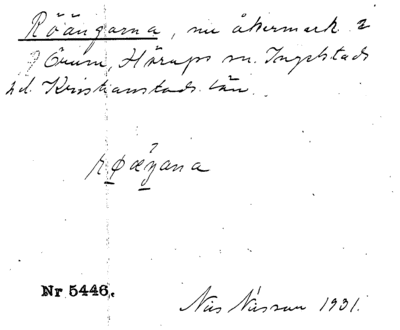 Röängarna, nu åkermark i
Örum, Hörups sn. Ingelstads
hd. Kristianstads län.
Nr 5446.
Nils Nilsson 1931.